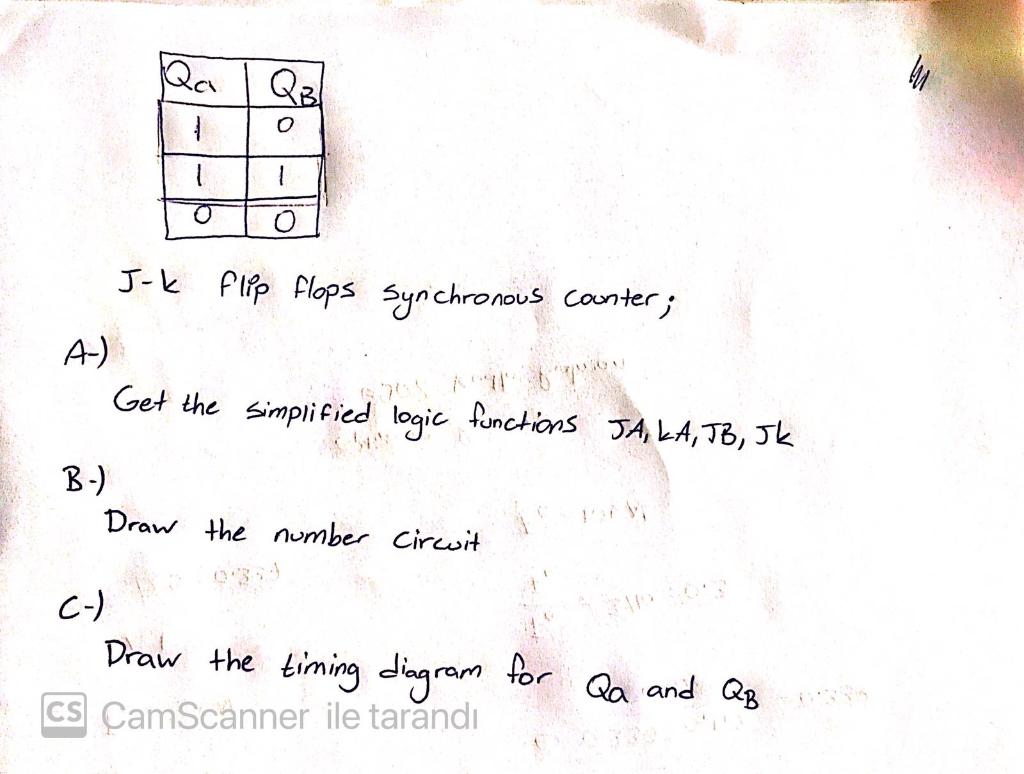 Qa QB
1 0
1 1
0 0
J-k flip flops synchronous counter;
A-)
Get the simplified logic functions JA, kA, JB, Jk
B-)
Draw the number circuit
C-)
Draw the timing diagram for Qa and QB
CS CamScanner ile tarandı